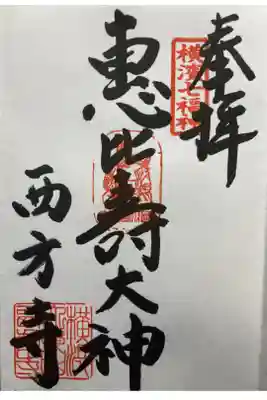 奉拝
横濱七福神
惠比壽大神
西方寺